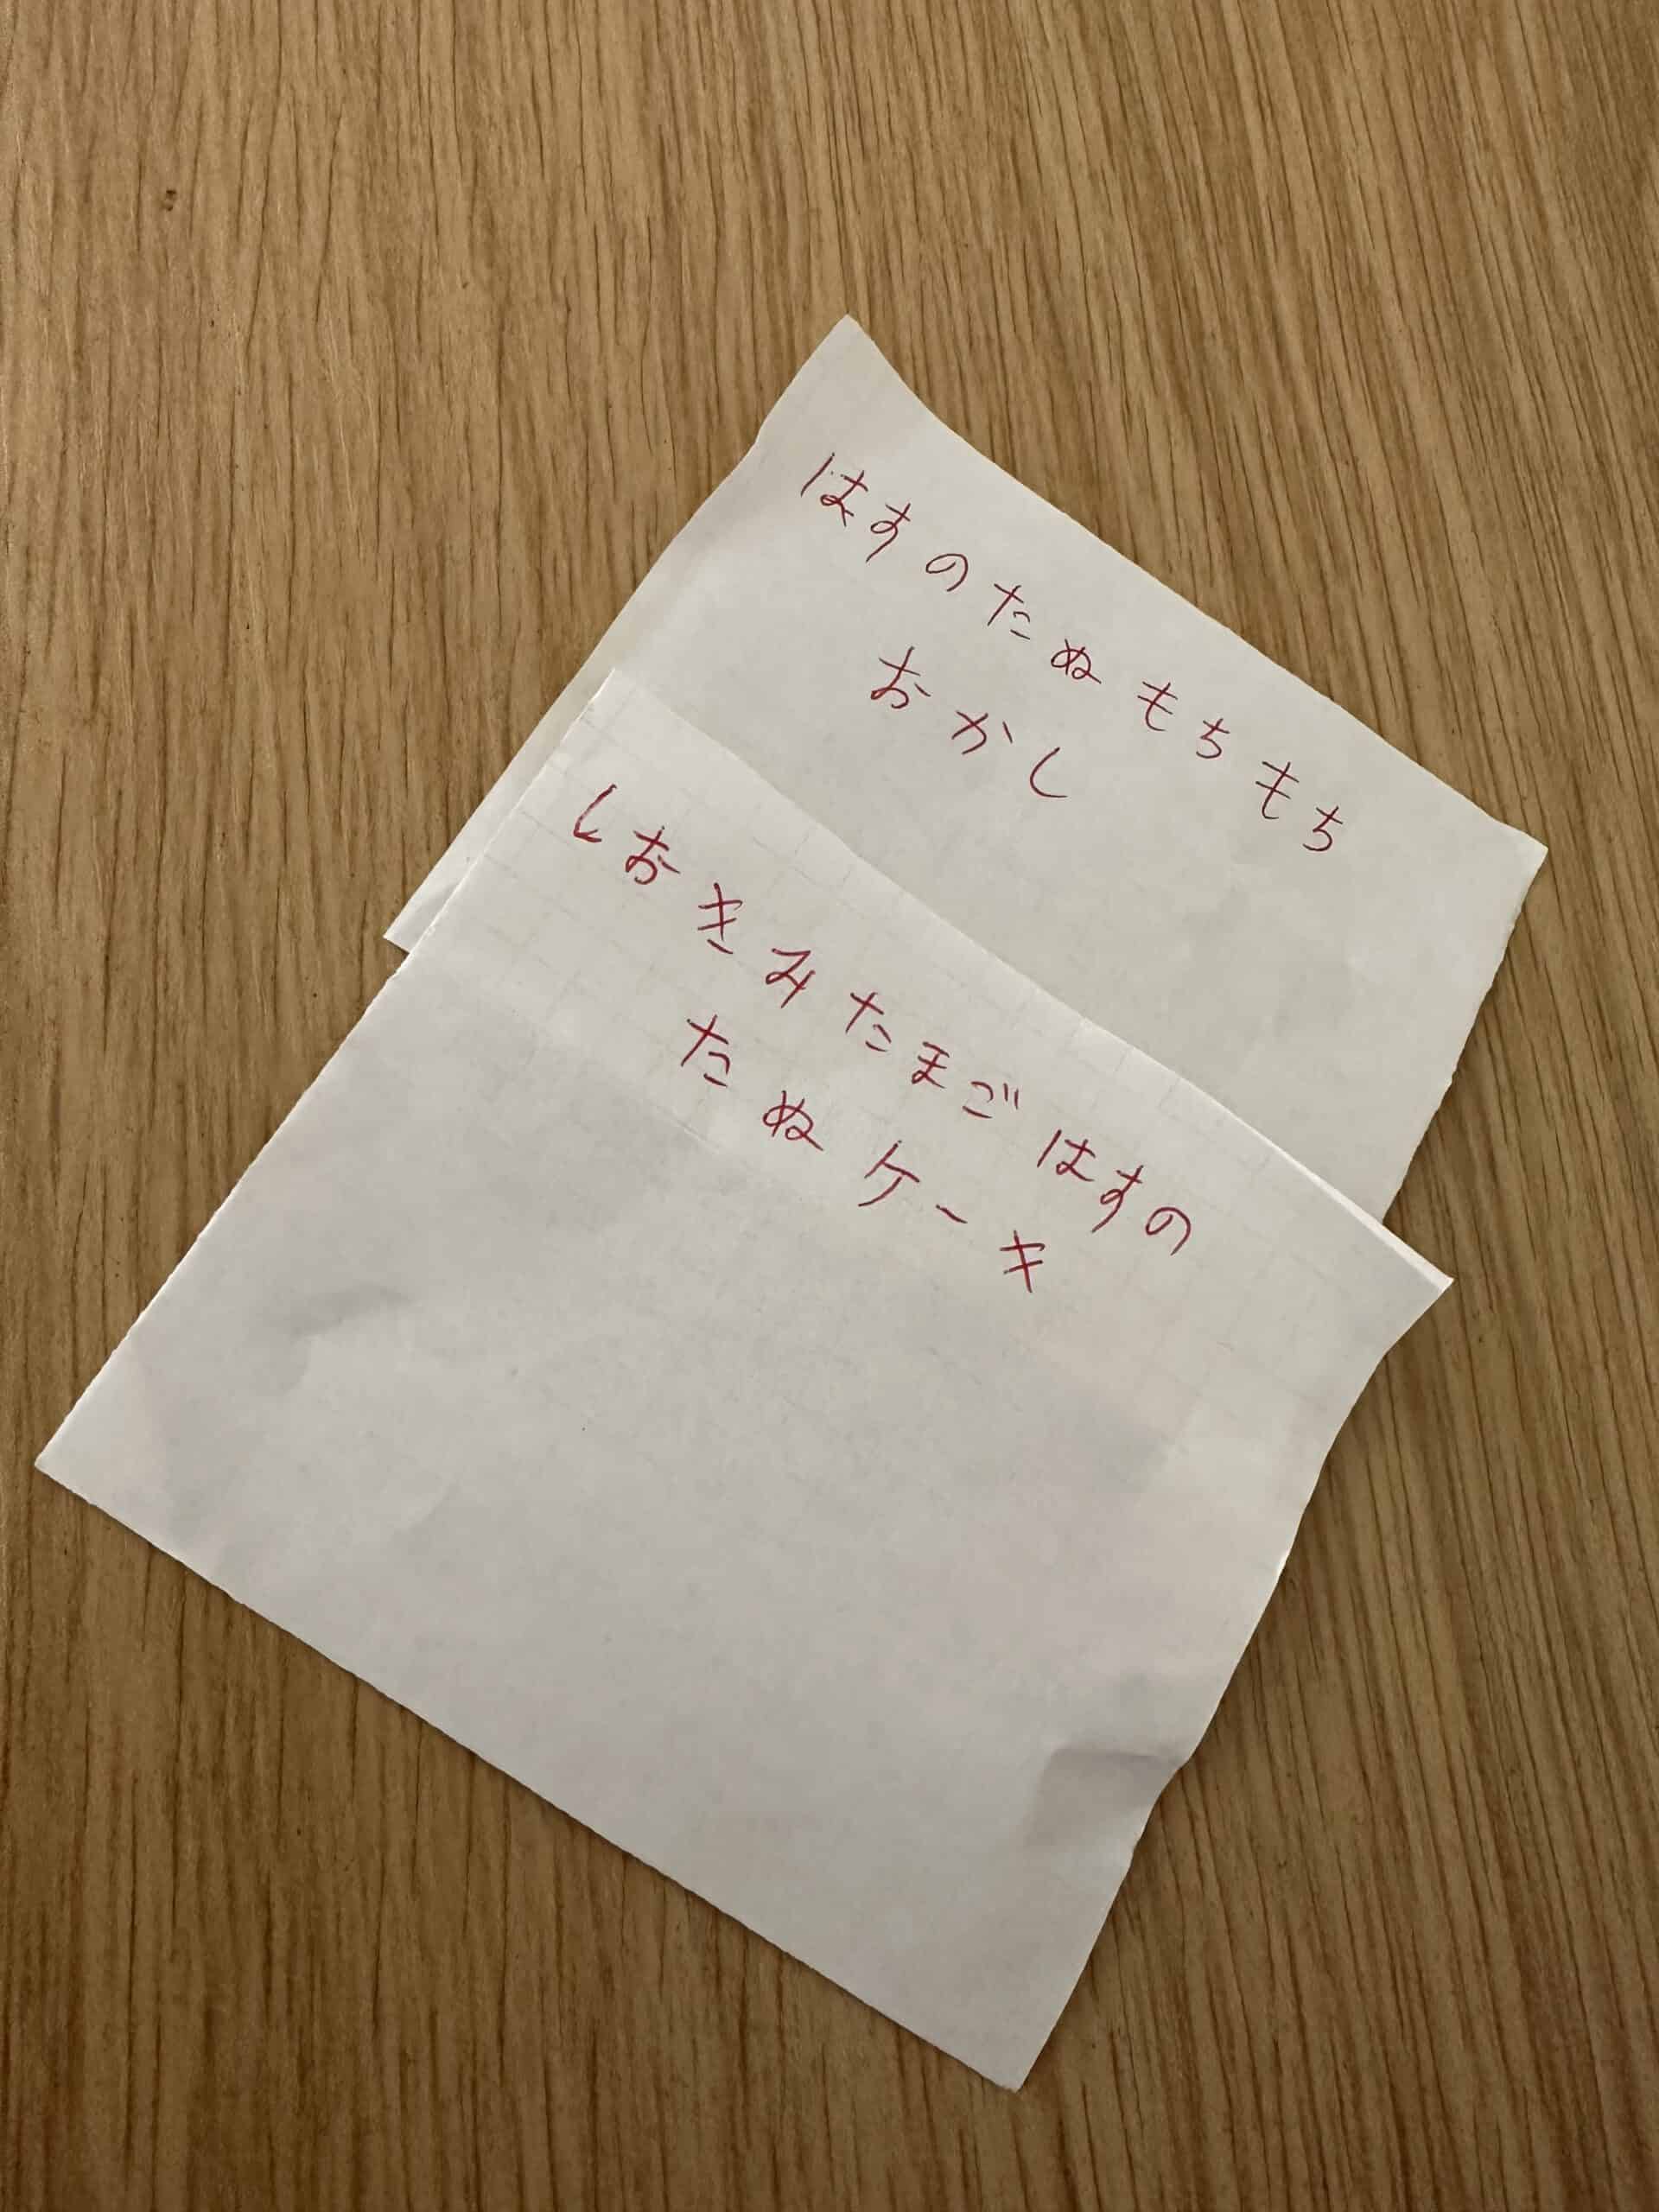 はすのたぬもちもち
おかし
しおきみたまごはすの
たぬケーキ